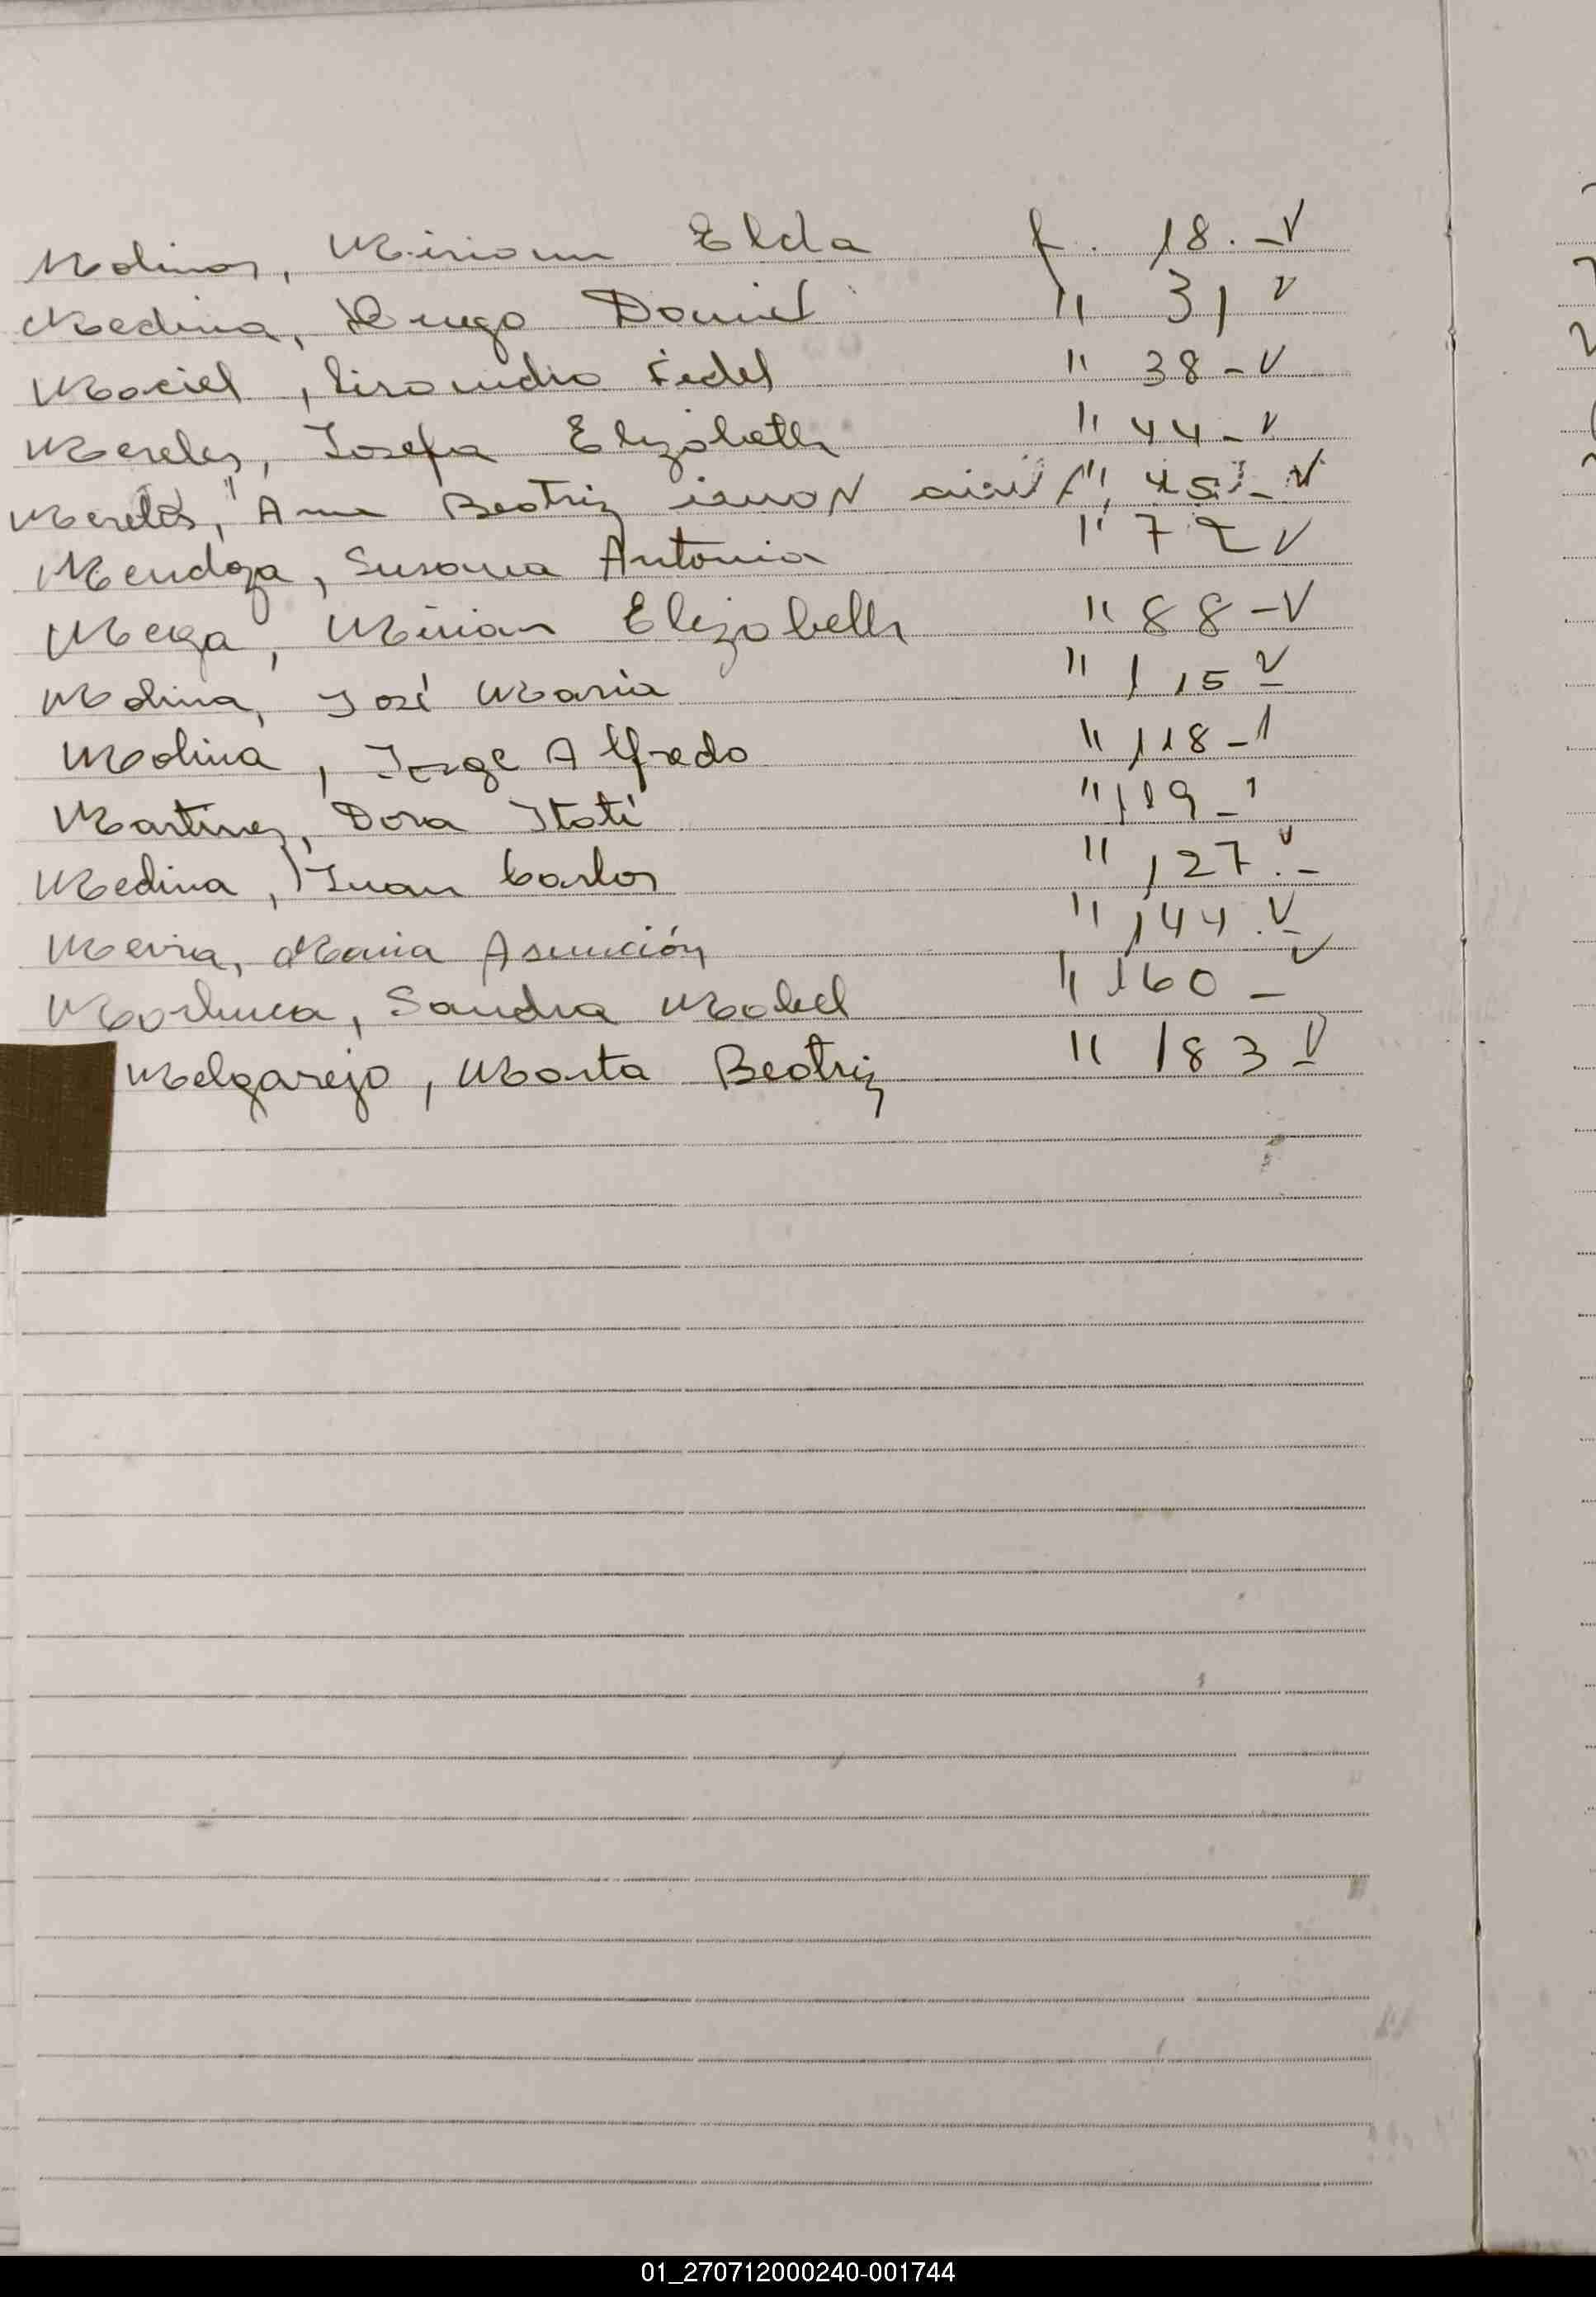 Molinas, Miriam Elda f. 18.-V
Medina, Hugo Daniel " 31 V
Maciel, Lisandro Fidel " 38-V
Mereles, Josefa Elizabeth " 44-V
Mereles, Ana Beatriz " 45-V
Mendoza, Susana Antonia " 72 V
Meza, Mirian Elizabeth " 88-V
Molina, José Maria " 115 V
Molina, Jorge Alfredo " 118-V
Martinez, Dora Itati " 119-
Medina, Juan Carlos " 127 V.-
Meira, Maria Asunción " 144.V-
Sandra Mabel " 160- V
Melgarejo, Marta Beatriz " 183 V
01_270712000240-001744